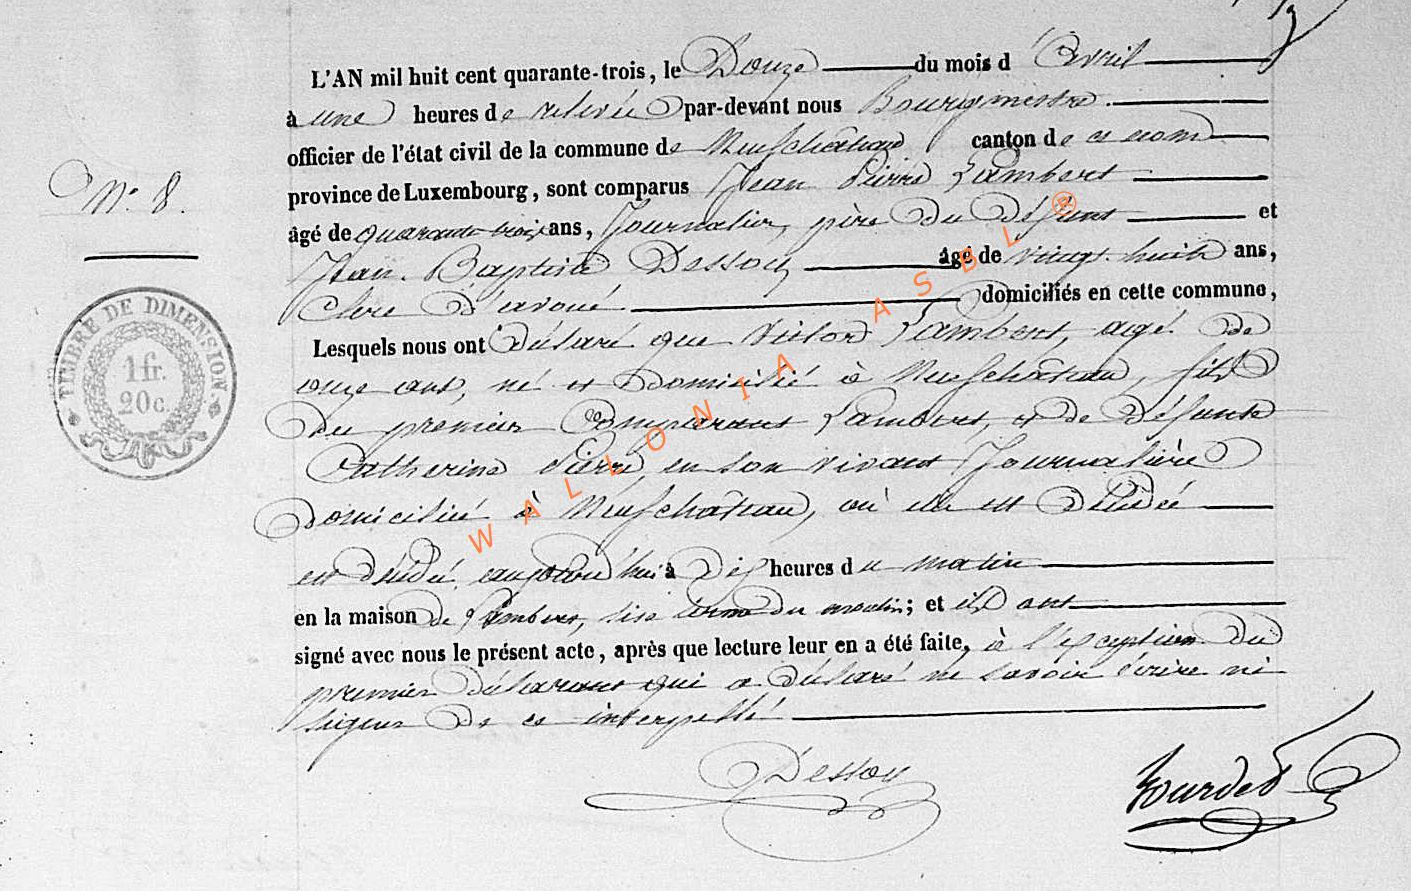 L'AN mil huit cent quarante-trois, le Douze du mois d'Avril
N.° 8.
à une heures de relevée par-devant nous Bourgmestre.
officier de l'état civil de la commune de Neufchâteau canton de ce nom
province de Luxembourg, sont comparus Jean Pierre Lambert
âgé de quarante trois ans, Journalier, père du Défunt et
Jean Baptiste Dessoy âgé de vingt-huit ans,
Clerc d'avoué domiciliés en cette commune,
Lesquels nous ont Déclaré que Victor Lambert, agé de
onze ans, né et domicilié à Neufchâteau, fils
du premier Comparant Lambert, et de Défunte
Catherine Pierre en son vivant Journalière
domiciliée à Neufchâteau, où elle est décédée
est décédé aujourd'hui à Dix heures du matin
en la maison de Lambert, sise du moulin; et ils ont
signé avec nous le présent acte, après que lecture leur en a été faite, à l'exception du
premier déclarant qui a déclaré ne savoir écrire ni
signer de ce interpellé
Dessoy
Tourdes
TIMBRE DE DIMENSION
1 fr.
20 c.
WALLONIA ASBL ®